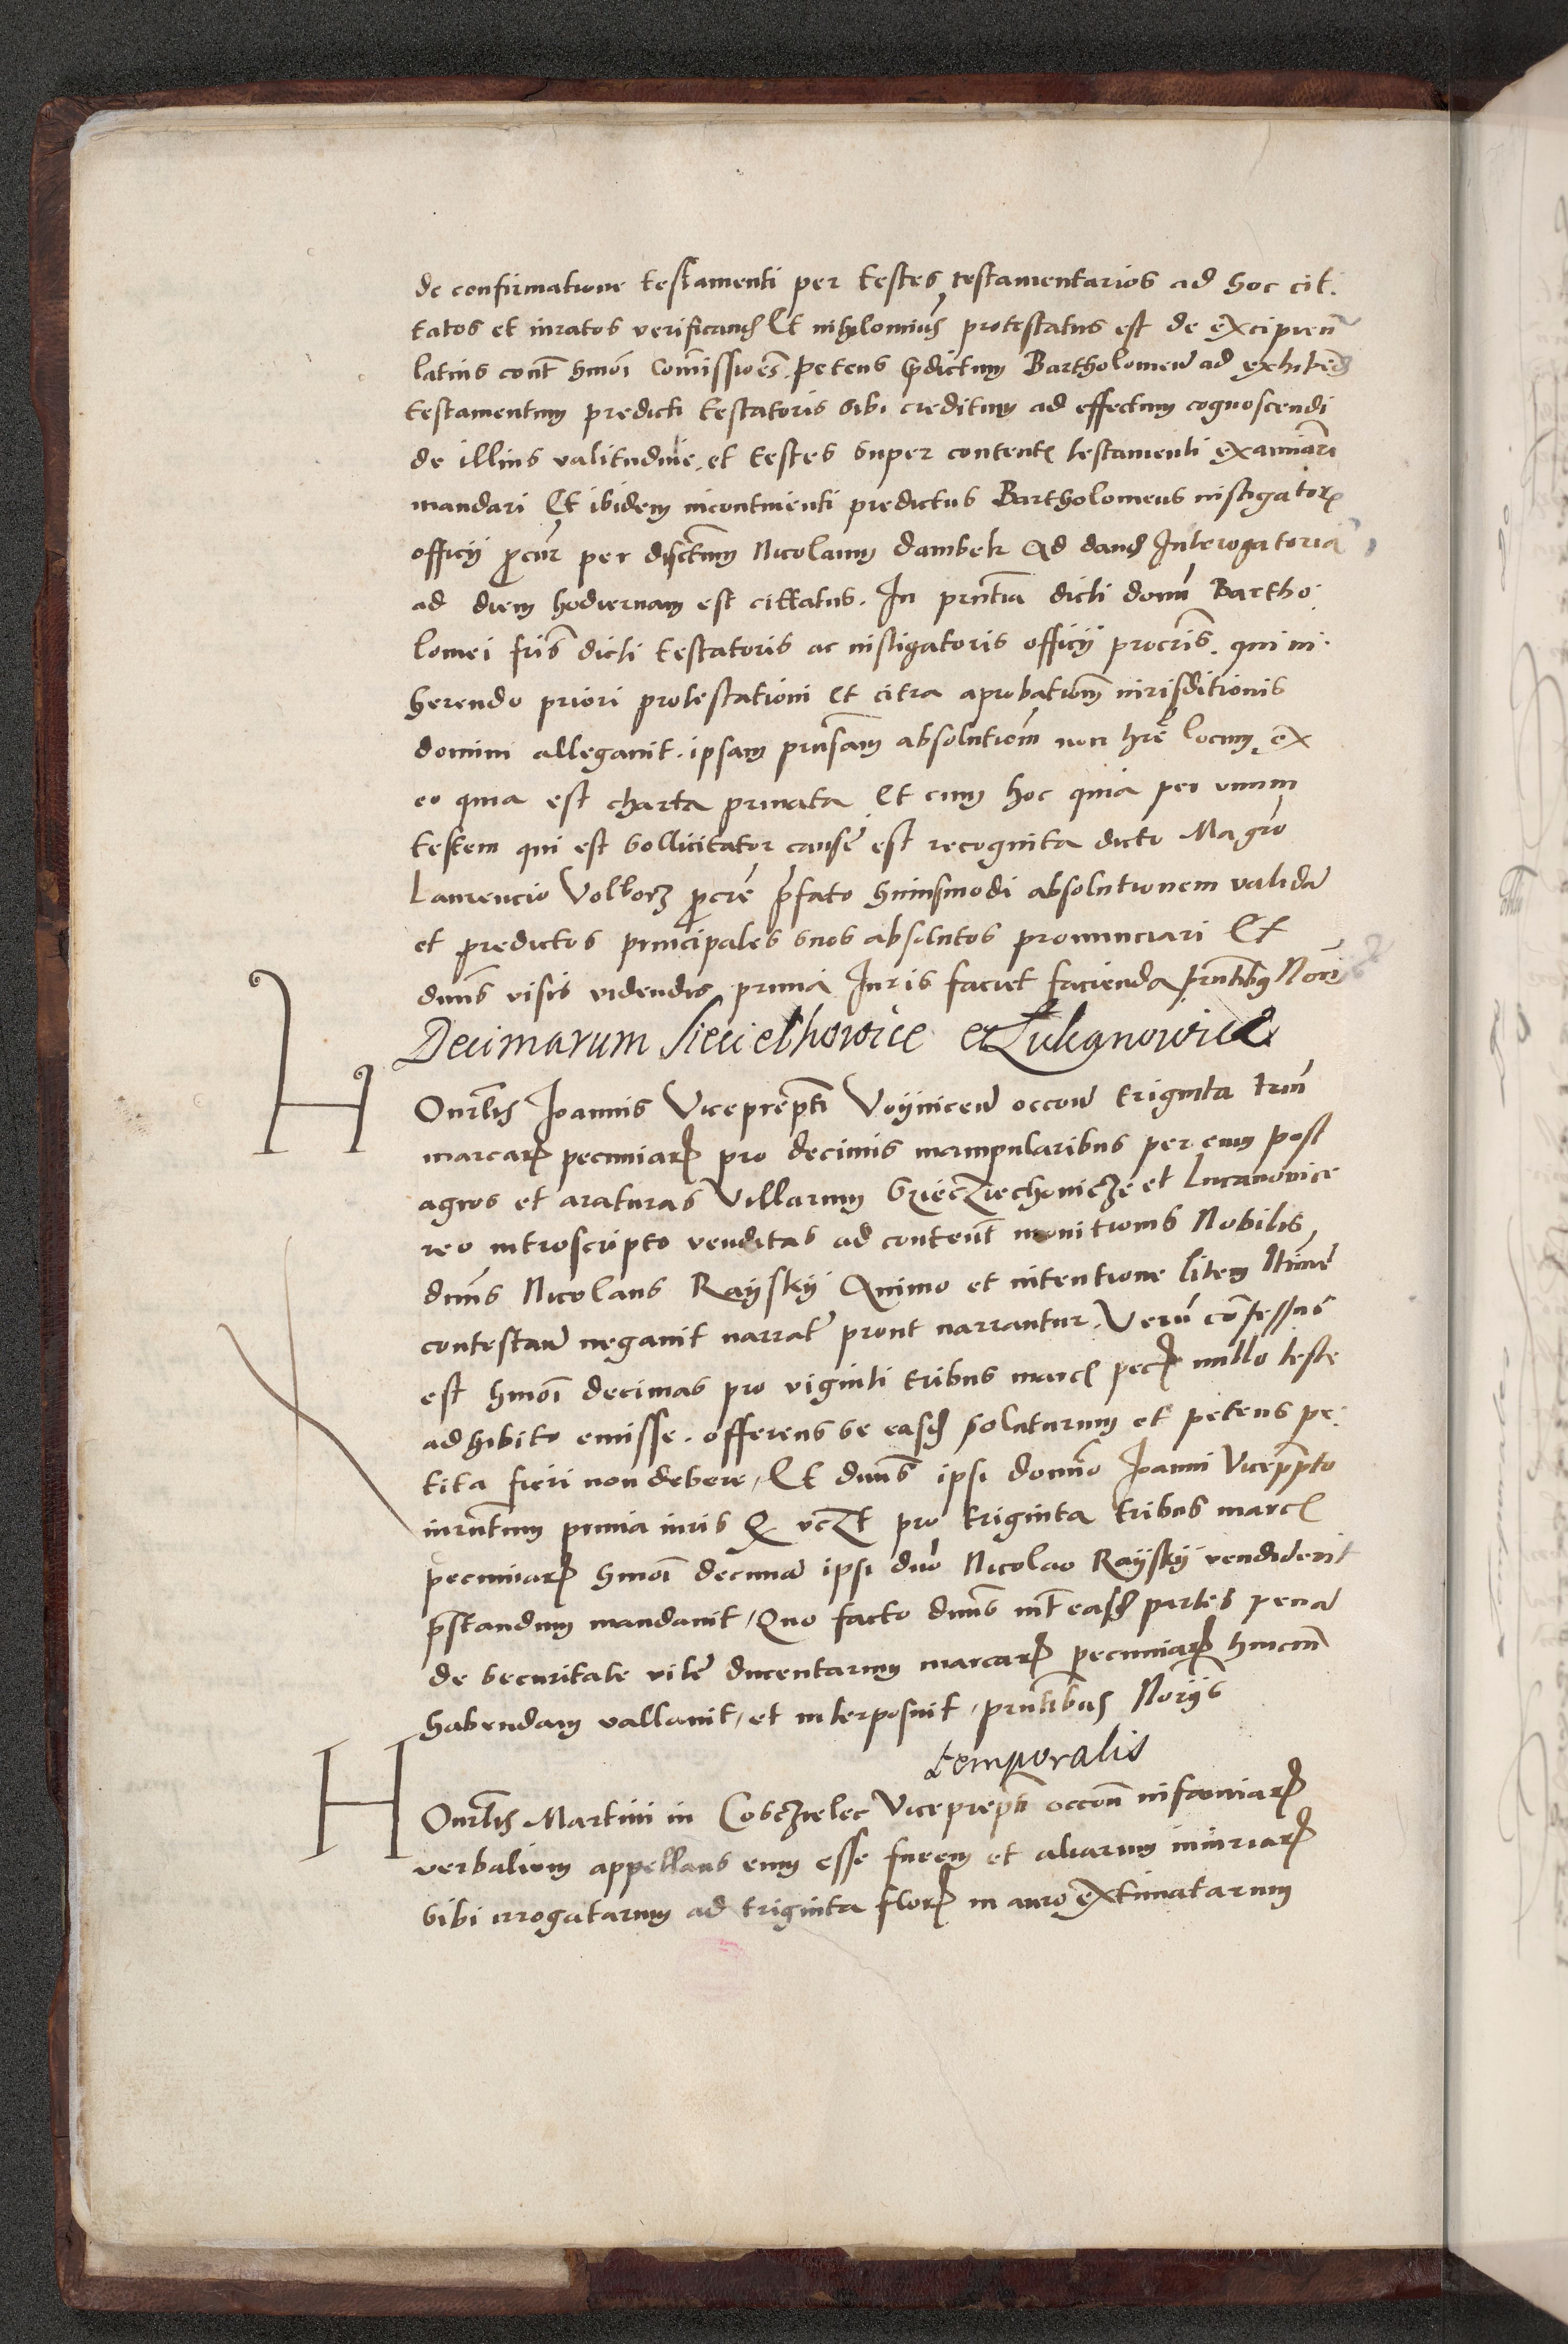 de confirmatione testamenti per testes testamentarios ad hoc cit.
tatos et iuratos verificand Et nihylominus protestatus est de excipien
latius cont hmoi Comissioes. petens pdictum Bartholomeu ad exhibend
testamentum predicti testatoris sibi creditum ad effectum cognoscendi
de illius valitudine, et testes super content testamenti examiari
mandari Et ibidem incontinenti predictus Bartholomeus instigator
officij pcur per discretum Nicolaum dambek Ad dand Interogatoria
ad diem hodiernam est cittatus. In pntia dicti domi Bartho
lomei fris dicti testatoris ac instigatoris officij procris. qui in.
herendo priori protestationi et citra aprobationem iurisditionis
domini allegauit. ipsam prnsam absolutiom non hre locum, ex
eo quia est charta priuata Et cum hoc quia per vnum
testem qui est sollicitator cause est recognita dicto Magro
Laurencio Volborz pcre pfato huiusmodi absolutionem valida
et predictos principales suos absolutos pronunciari Et
dnus visis videndis prima Juris faciet facienda pntibus Noris
Decimarum Sieciethowice et Lukanowice
Honrblis Joannis Viceprepti Voynicen occone triginta trium
marcar pecuniar pro decimis manipularibus per eum post
agros et araturas Villarum Szieczyechowicze et Lucanowice
reo introscripto venditas ad content monitionis Nobilis
dnus Nicolaus Raysky Animo et intentione litem
contestan negauit narrata prout narrantur. Veru confessus
est hmoi decimas pro viginti tribus marc pec nullo teste
adhibito emisse. offerens se easd soluturum et petens pe.
tita fieri non debere, Et dnus ipsi domino Joanni Vicepto
iurntum prima iuris Q vczt pro triginta tribus marc
pecuniar hmoi decimas ipsi dno Nicolao Raysky vendiderit
pstandum mandauit, Quo facto dnus int easd partes pena
de securitate vite ducentarum marcar pecuniar hincin
habendam vallauit, et interposuit, pntibus Norijs
temporalis
Honrblis Martini in Cosczielec Viceprepti occone infamiar
verbalium appellans eum esse furem et aliarum iniuriar
sibi irrogatarum ad triginta flor in auro extimatarum